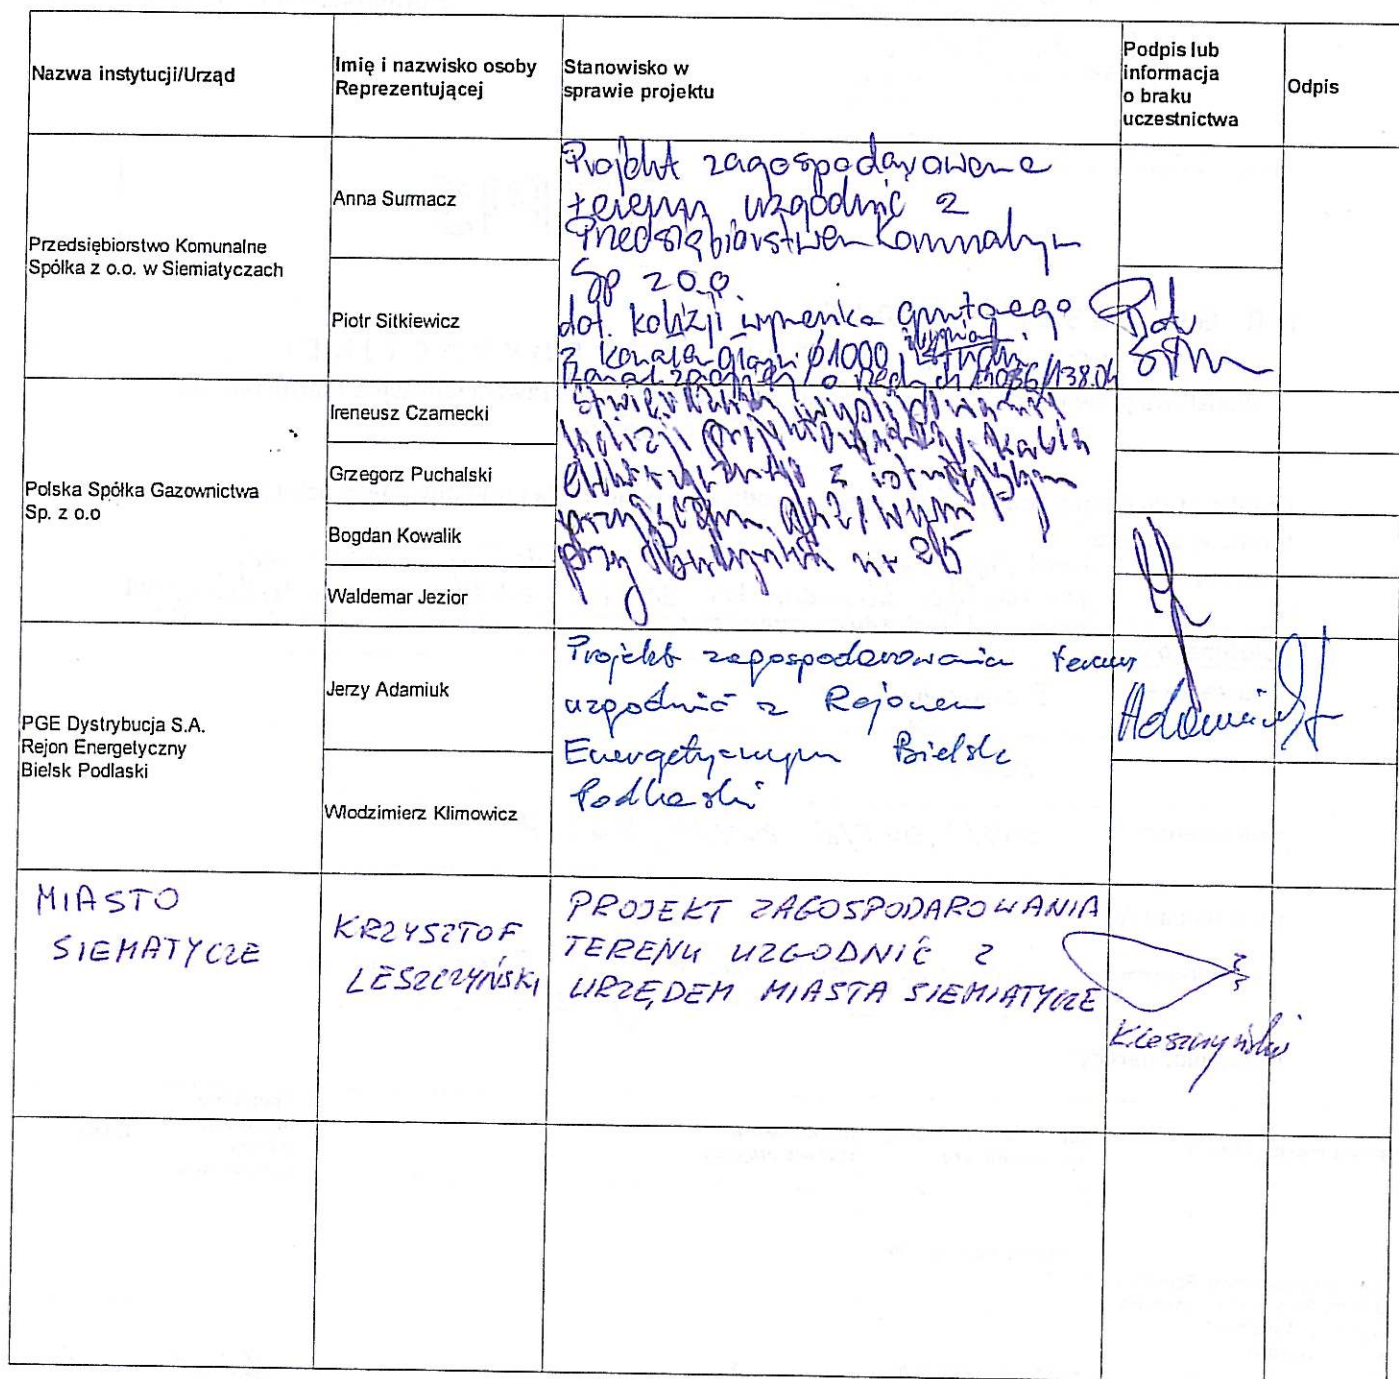 Nazwa instytucji/Urząd
Imię i nazwisko osoby
Reprezentującej
Stanowisko w
sprawie projektu
Podpis lub
informacja
o braku
uczestnictwa
Odpis
Przedsiębiorstwo Komunalne
Spółka z o.o. w Siemiatyczach
Anna Surmacz
Piotr Sitkiewicz
Projekt zagospodarowane
terenu uzgodnić z
Przedsiębiorstwem Komunalnym
Sp z o.o
dot. kolizji gruntowego
z Ø1000
kanał o rzędnych /138.04
Piotr
Polska Spółka Gazownictwa
Sp. z o.o
Ireneusz Czarnecki
Grzegorz Puchalski
Bogdan Kowalik
Waldemar Jezior
kolizji kabla
z istniejącym
przyłączem gazowym
przy budynku nr 25
PGE Dystrybucja S.A.
Rejon Energetyczny
Bielsk Podlaski
Jerzy Adamiuk
Włodzimierz Klimowicz
Projekt zagospodarowania terenu
uzgodnić z Rejonem
Energetycznym Bielsk
Podlaski
Adamiuk
MIASTO
SIEMATYCZE
KRZYSZTOF
LESZCZYŃSKI
PROJEKT ZAGOSPODAROWANIA
TERENU UZGODNIĆ Z
URZĘDEM MIASTA SIEMIATYCZE
KLeszczyński